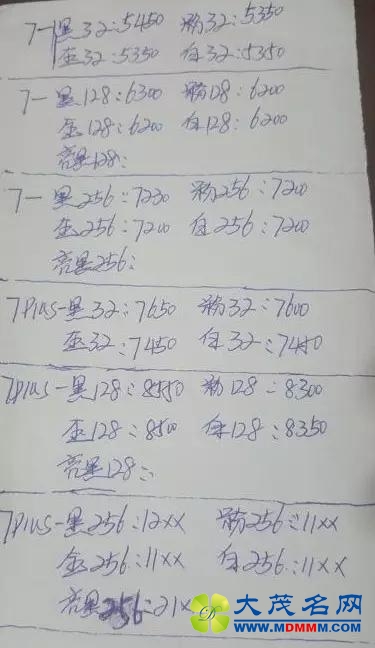 7一黑32:5450 粉32:5350
金32:5350 白32:5350
7一黑128:6300 粉128:6200
金128:6200 白128:6200
亮黑128:
7一黑256:7230 粉256:7200
金256:7200 白256:7200
亮黑256:
7Plus-黑32:7650 粉32:7600
金32:7450 白32:7450
7Plus-黑128:8550 粉128:8300
金128:8500 白128:8350
亮黑128:
7Plus-黑256:12xx 粉256:11xx
金256:11xx 白256:11xx
亮黑256:21x
大茂名网
WWW.MDMMM.COM